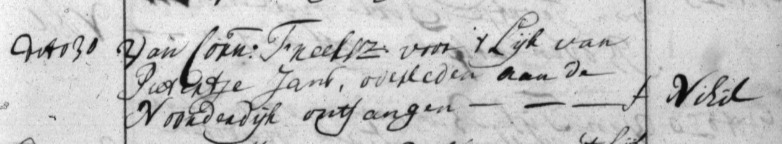 dito 30 Van Corn: Freeksz. voor 't Lijk van
Pietertje Jans, overleden aan de
Noorderdijk ontfangen — — — f Nihil